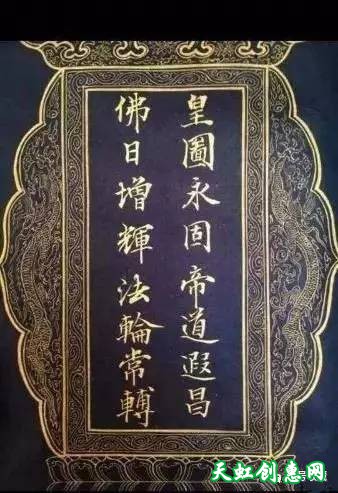 皇圖永固帝道遐昌
佛日增輝法輪常轉
天虹创意网